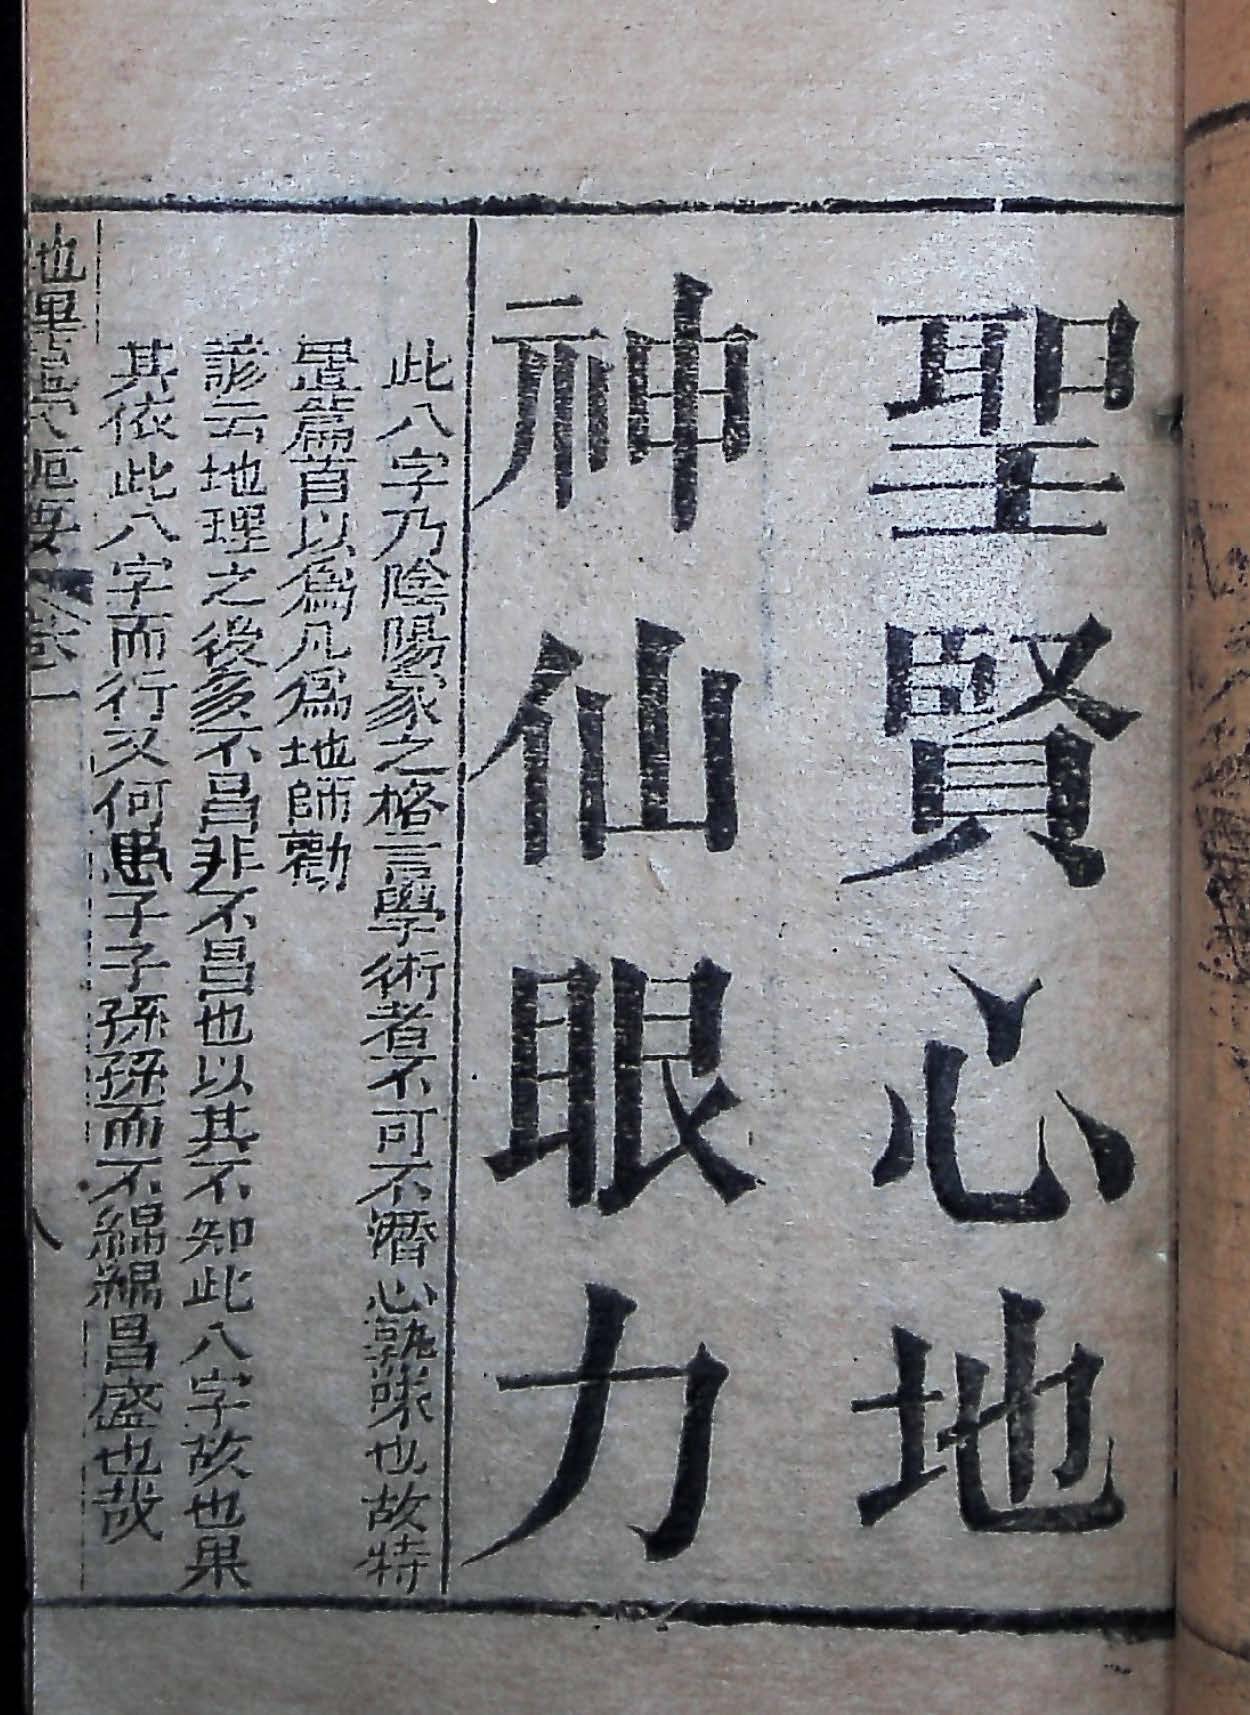 聖賢心地
神仙眼力
此八字乃陰陽家之格言學術者不可不潛心孰味也故特
置篇首以為凡為地師勸
諺云地理之後多不昌非不昌也以其不知此八字故也果
其依此八字而行又何患子子孫孫而不綿綿昌盛也哉
卷一
八